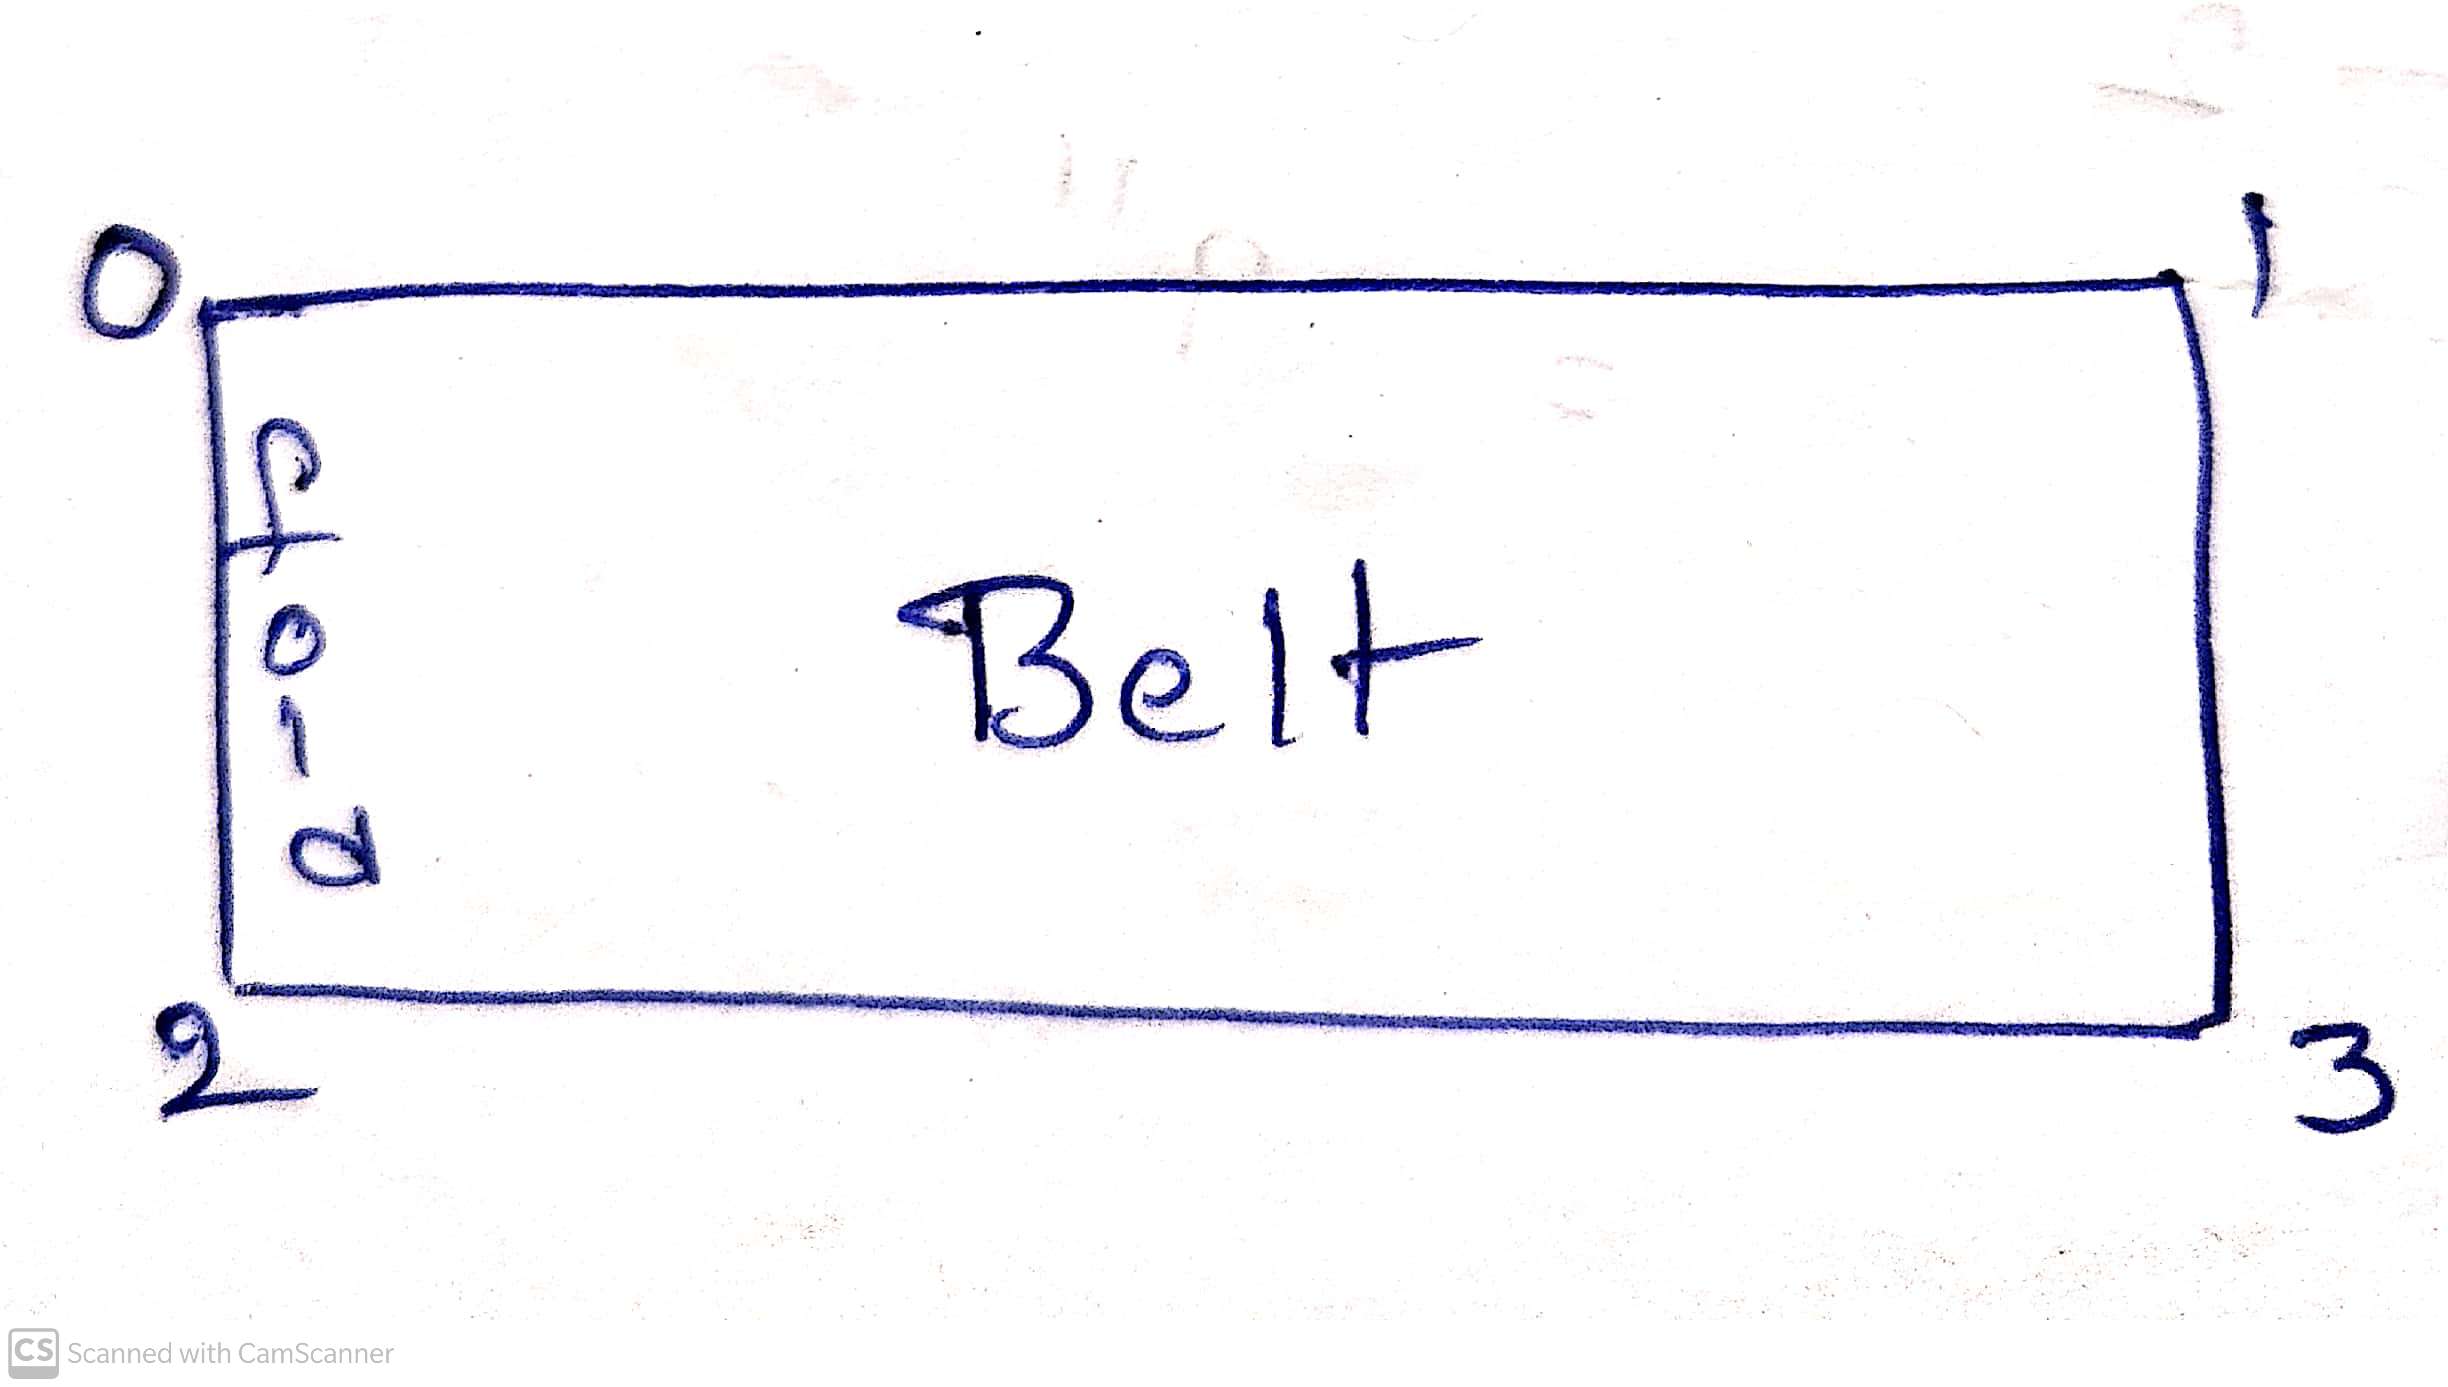 0
1
fold
Belt
2
3
CS Scanned with CamScanner